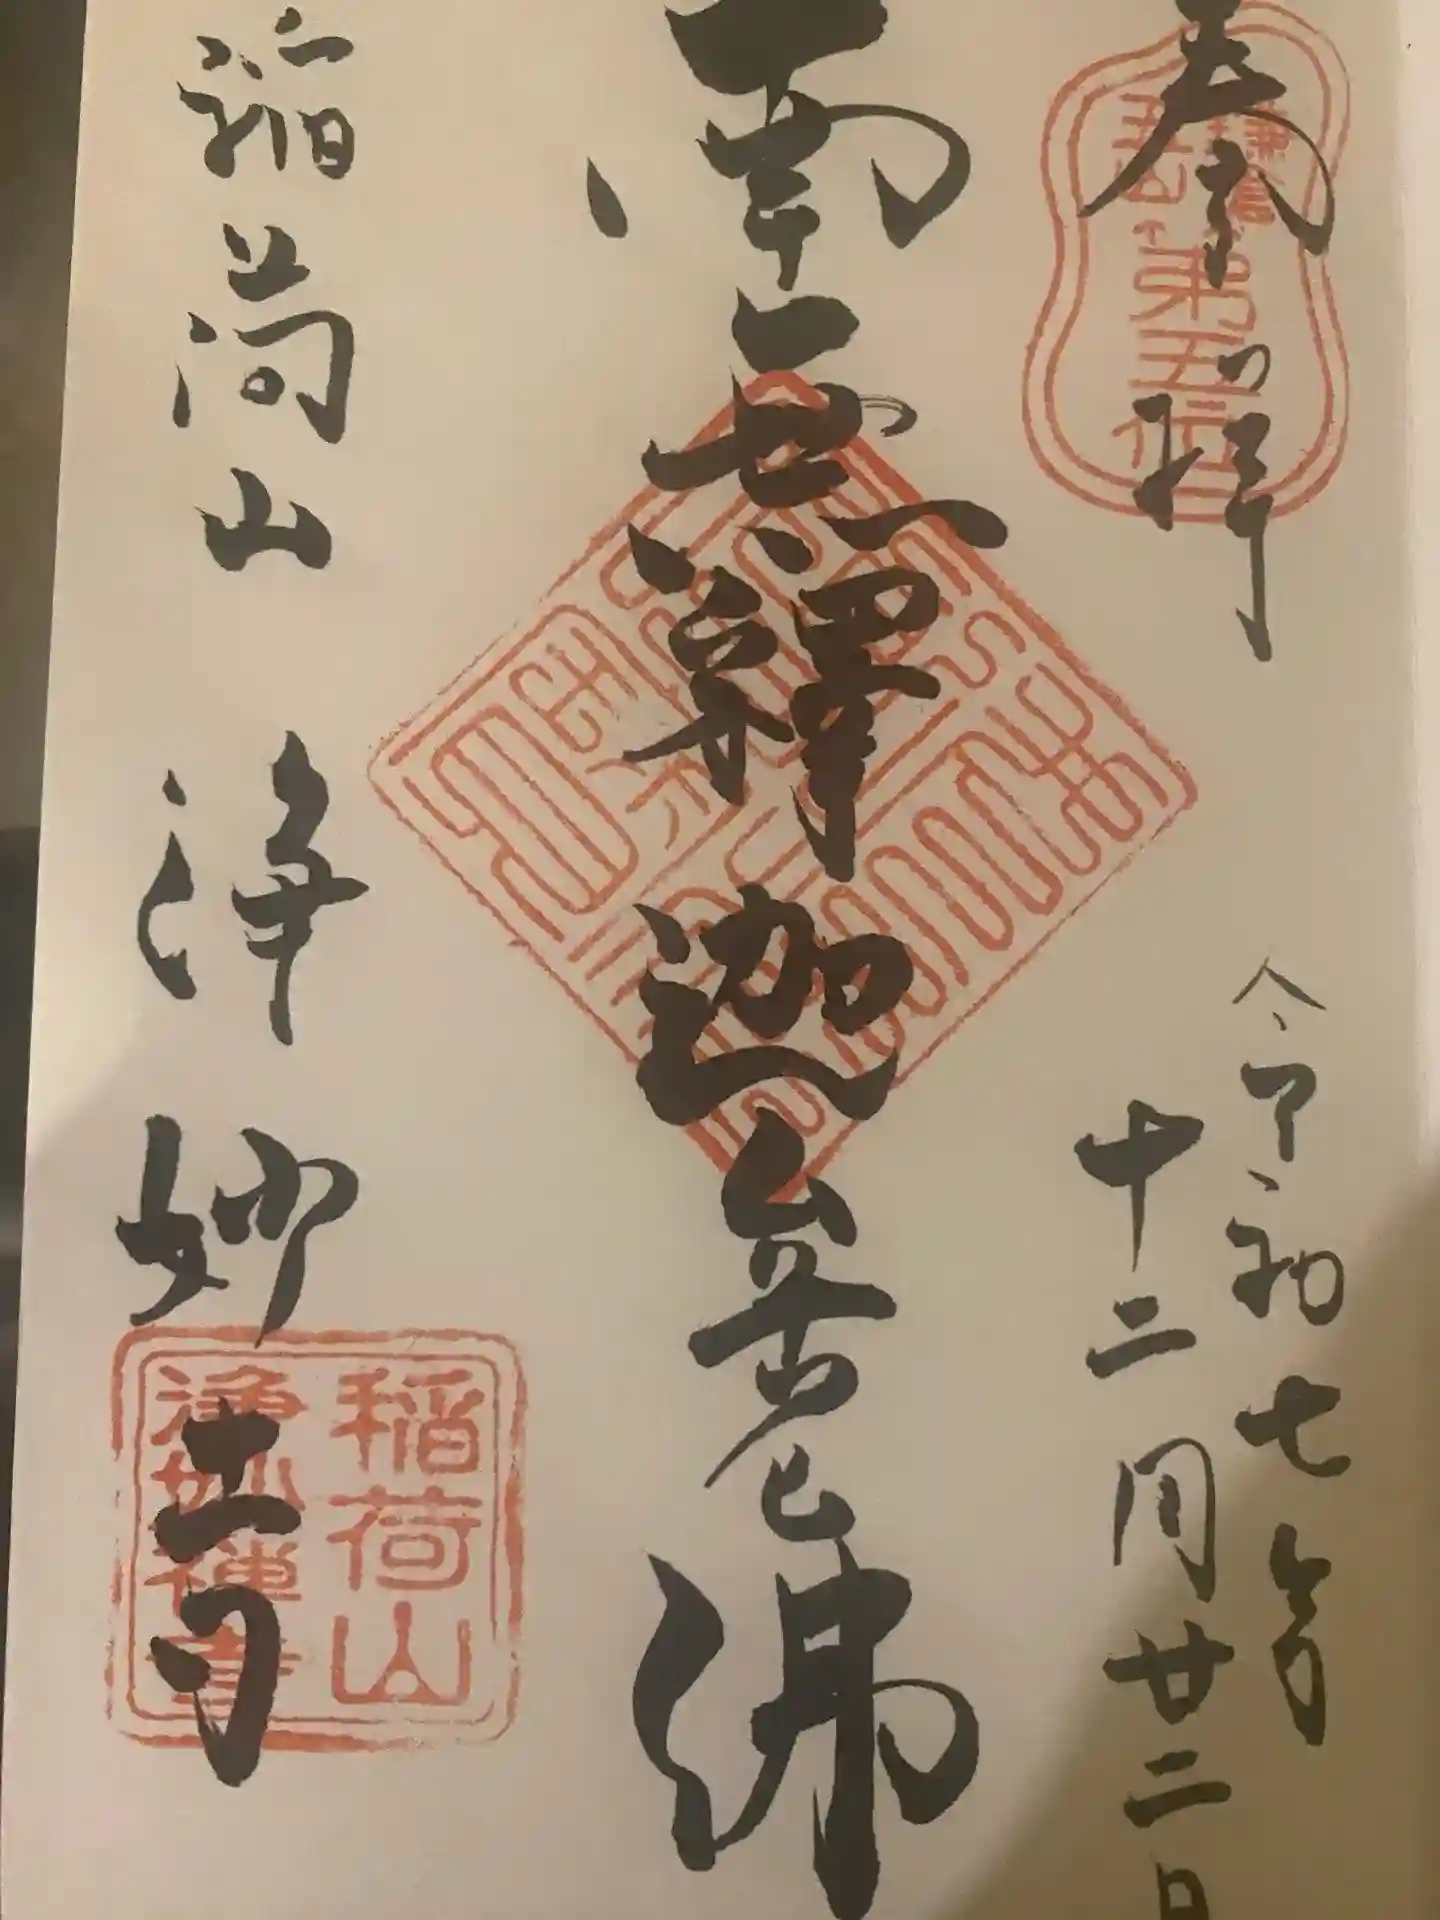 奉拝
鎌倉
五山
第五位
令和七年
十二月廿二日
南無釋迦牟尼佛
稲荷山 浄妙寺
稲荷山
浄妙禅寺